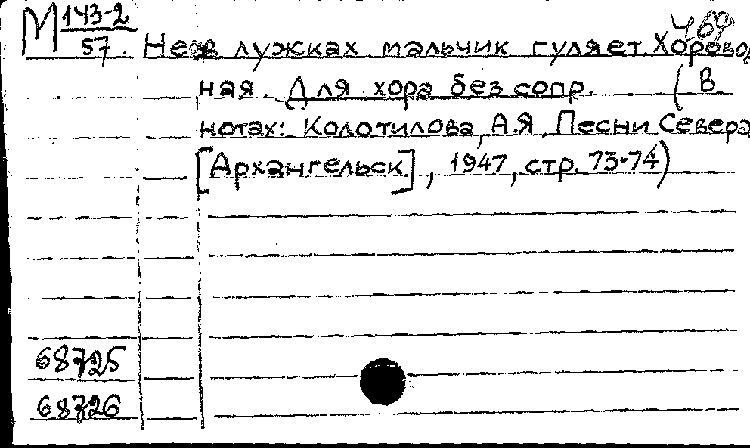 М 143-2
57. Не в лужках мальчик гуляет. Хоровод
ная. Для хора без сопр. (В
нотах: Колотилова, А.Я. Песни Севера
[Архангельск], 1947, стр. 73-74)
68725
68726